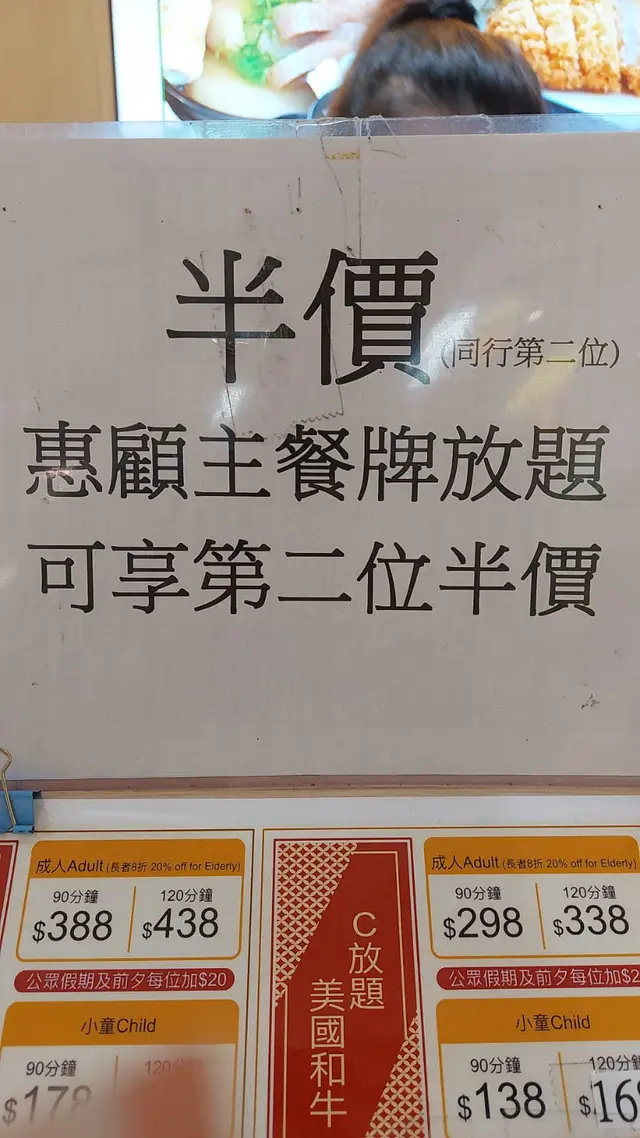 半價(同行第二位)
惠顧主餐牌放題
可享第二位半價
成人Adult (長者8折 20% off for Elderly)
90分鐘 120分鐘
$388 $438
公眾假期及前夕每位加$20
小童Child
90分鐘
$178
C放題
美國和牛
成人Adult (長者8折 20% off for Elderly)
90分鐘 120分鐘
$298 $338
公眾假期及前夕每位加
小童Child
90分鐘 120分鐘
$138